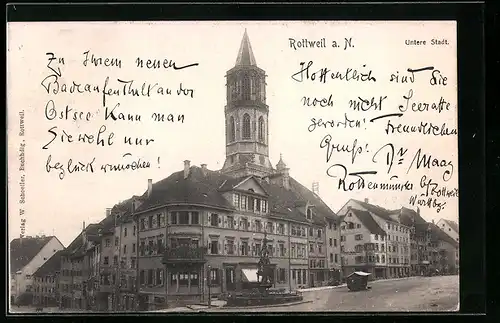 Rottweil a. N.
Untere Stadt.
Zu Ihrem neuen
Badeaufenthalt an der
Ostsee kann man
Sie wohl nur
beglückwünschen!
Hoffentlich sind Sie
noch nicht Seeratte
geworden!
Freundlichen
Gruss!
Dr Maag
Rottenmünster b/ Rottweil
Württbg.
Verlag W. Schoeller, Buchhdlg., Rottweil.